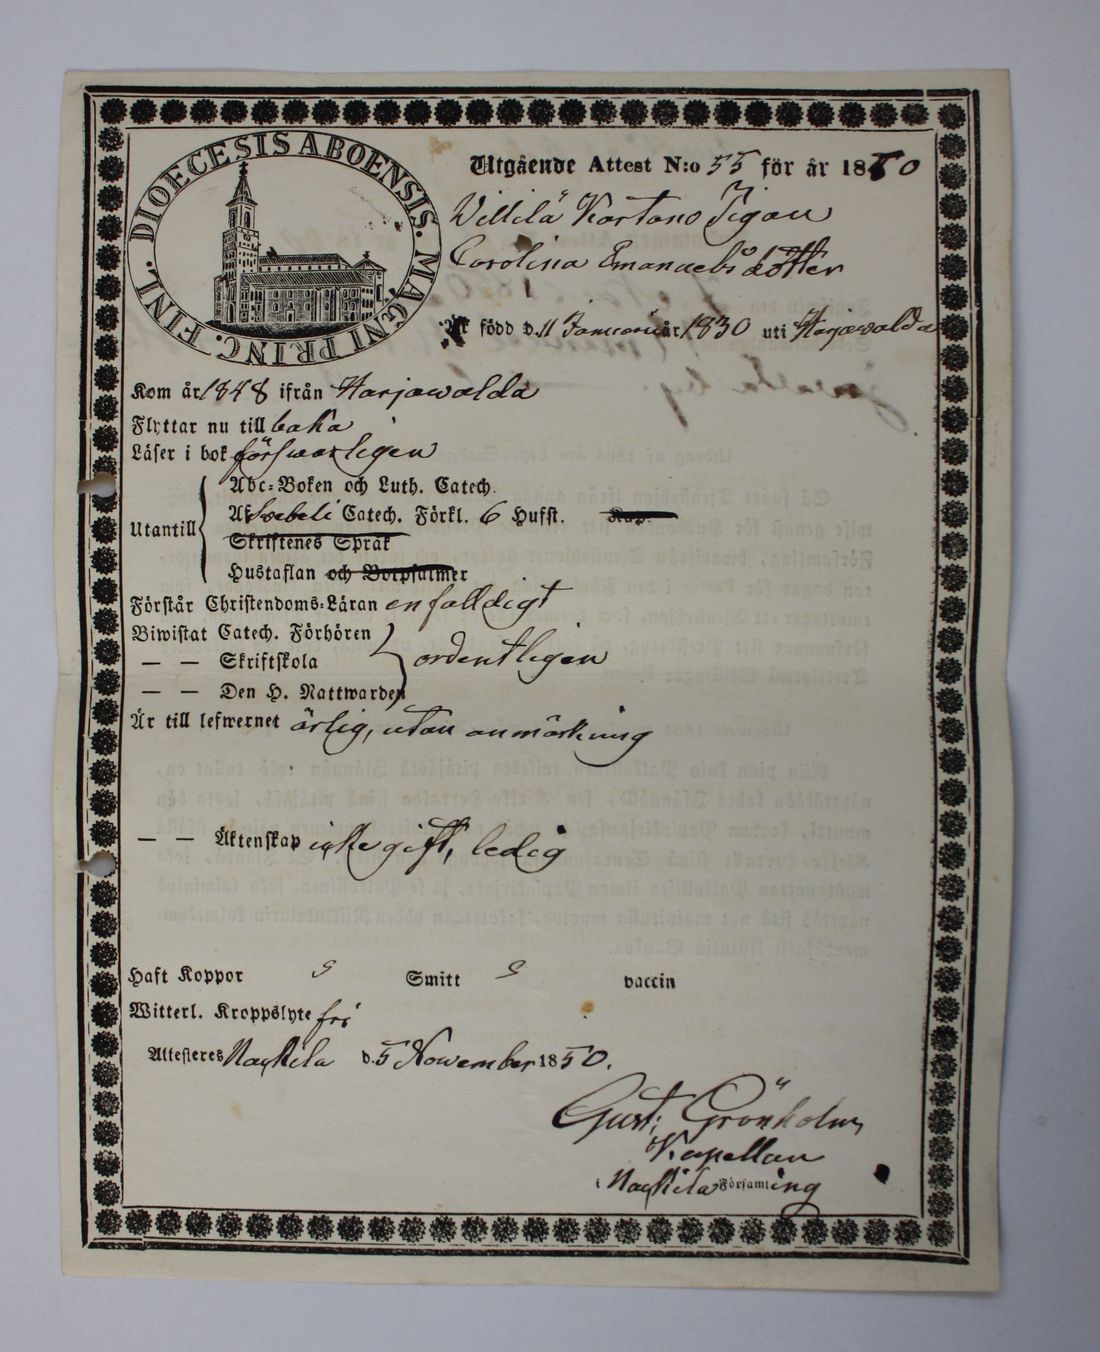 DIOECESIS ABOENSIS. MAGNI PRINC. FINL.
Utgående Attest N:o 55 för år 1850
Willilä Kartano Pigan
Carolina Emanuelsdotter
Är född d. 11 Januarii år 1830 uti Harjawalda
Kom år 1848 ifrån Harjawalda
Flyttar nu till baka
Läser i bok förswarligen
Utantill
Abc-Boken och Luth. Catech.
Af Svebeli Catech. Förkl. 6 Hufst. Kap.
Skriftenes Språk
Hustaflan och Botpsalmer
Förstår Christendoms-Läran enfalldigt
Biwistat Catech. Förhören
— — Skriftskola
ordentligen
— — Den H. Nattwarden
Är till lefwernet ärlig, utan anmärkning
— — Äktenskap icke gift, ledig
Haft Koppor Smitt vaccin
Witterl. Kroppslyte fri
Attesteras Nackila d. 5 November 1850.
Gust: Grönholm
Kapellan
i Nackila Församling